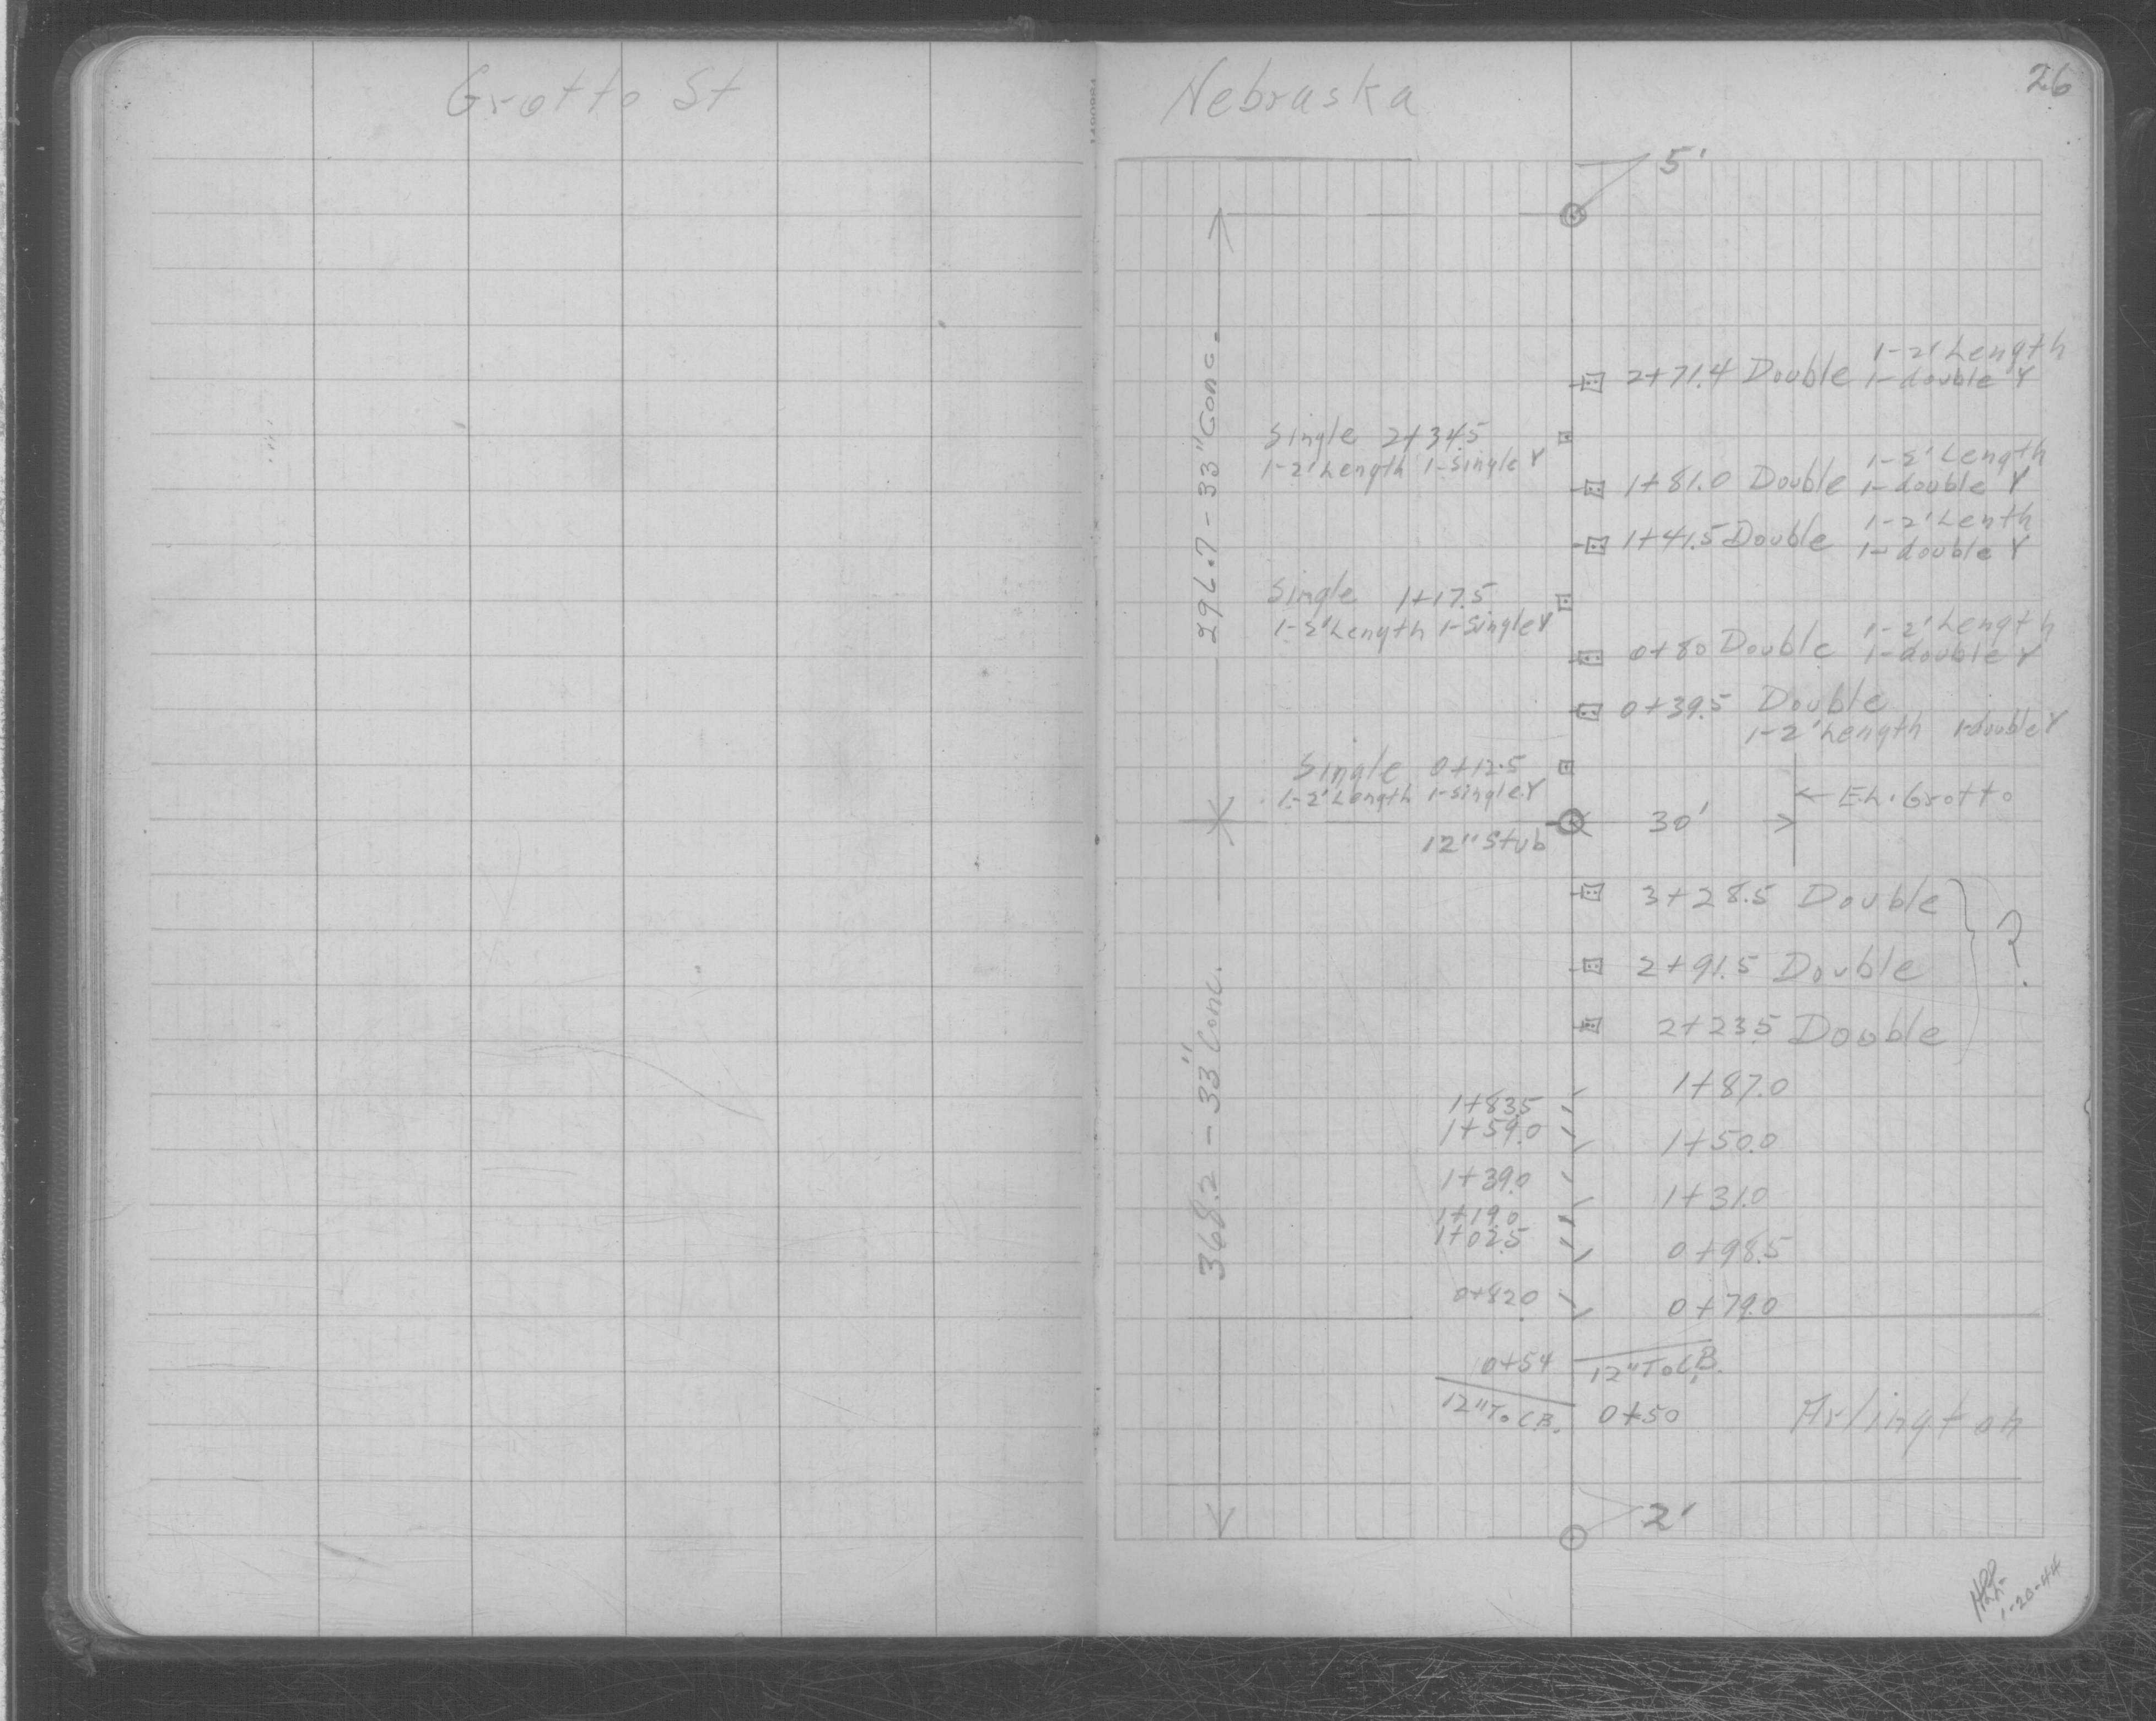 Grotto St
Nebraska
26
5'
1-2' Length
2+71.4 Double 1-double Y
Single 2+34.5
1-2' Length 1-Single Y
1-2' Length
1+81.0 Double 1-double Y
1-2' Lenth
1+41.5 Double 1-double Y
Single 1+17.5
1-2' Length 1-Single Y
1-2' Length
0+80 Double 1-double Y
0+39.5 Double
1-2' Length 1-double Y
Single 0+12.5
1-2' Length 1-single Y
296.7 - 33" Conc.
E.L. Grotto
30'
12" Stub
3+28.5 Double
?
2+91.5 Double
2+23.5 Double
1+87.0
1+83.5
1+59.0
1+50.0
1+39.0
1+31.0
1+19.0
1+02.5
0+98.5
0+82.0
0+79.0
368.2 - 33" Conc.
0+54
12" To C.B.
12" To C.B.
0+50
Arlington
2'
1-20-44